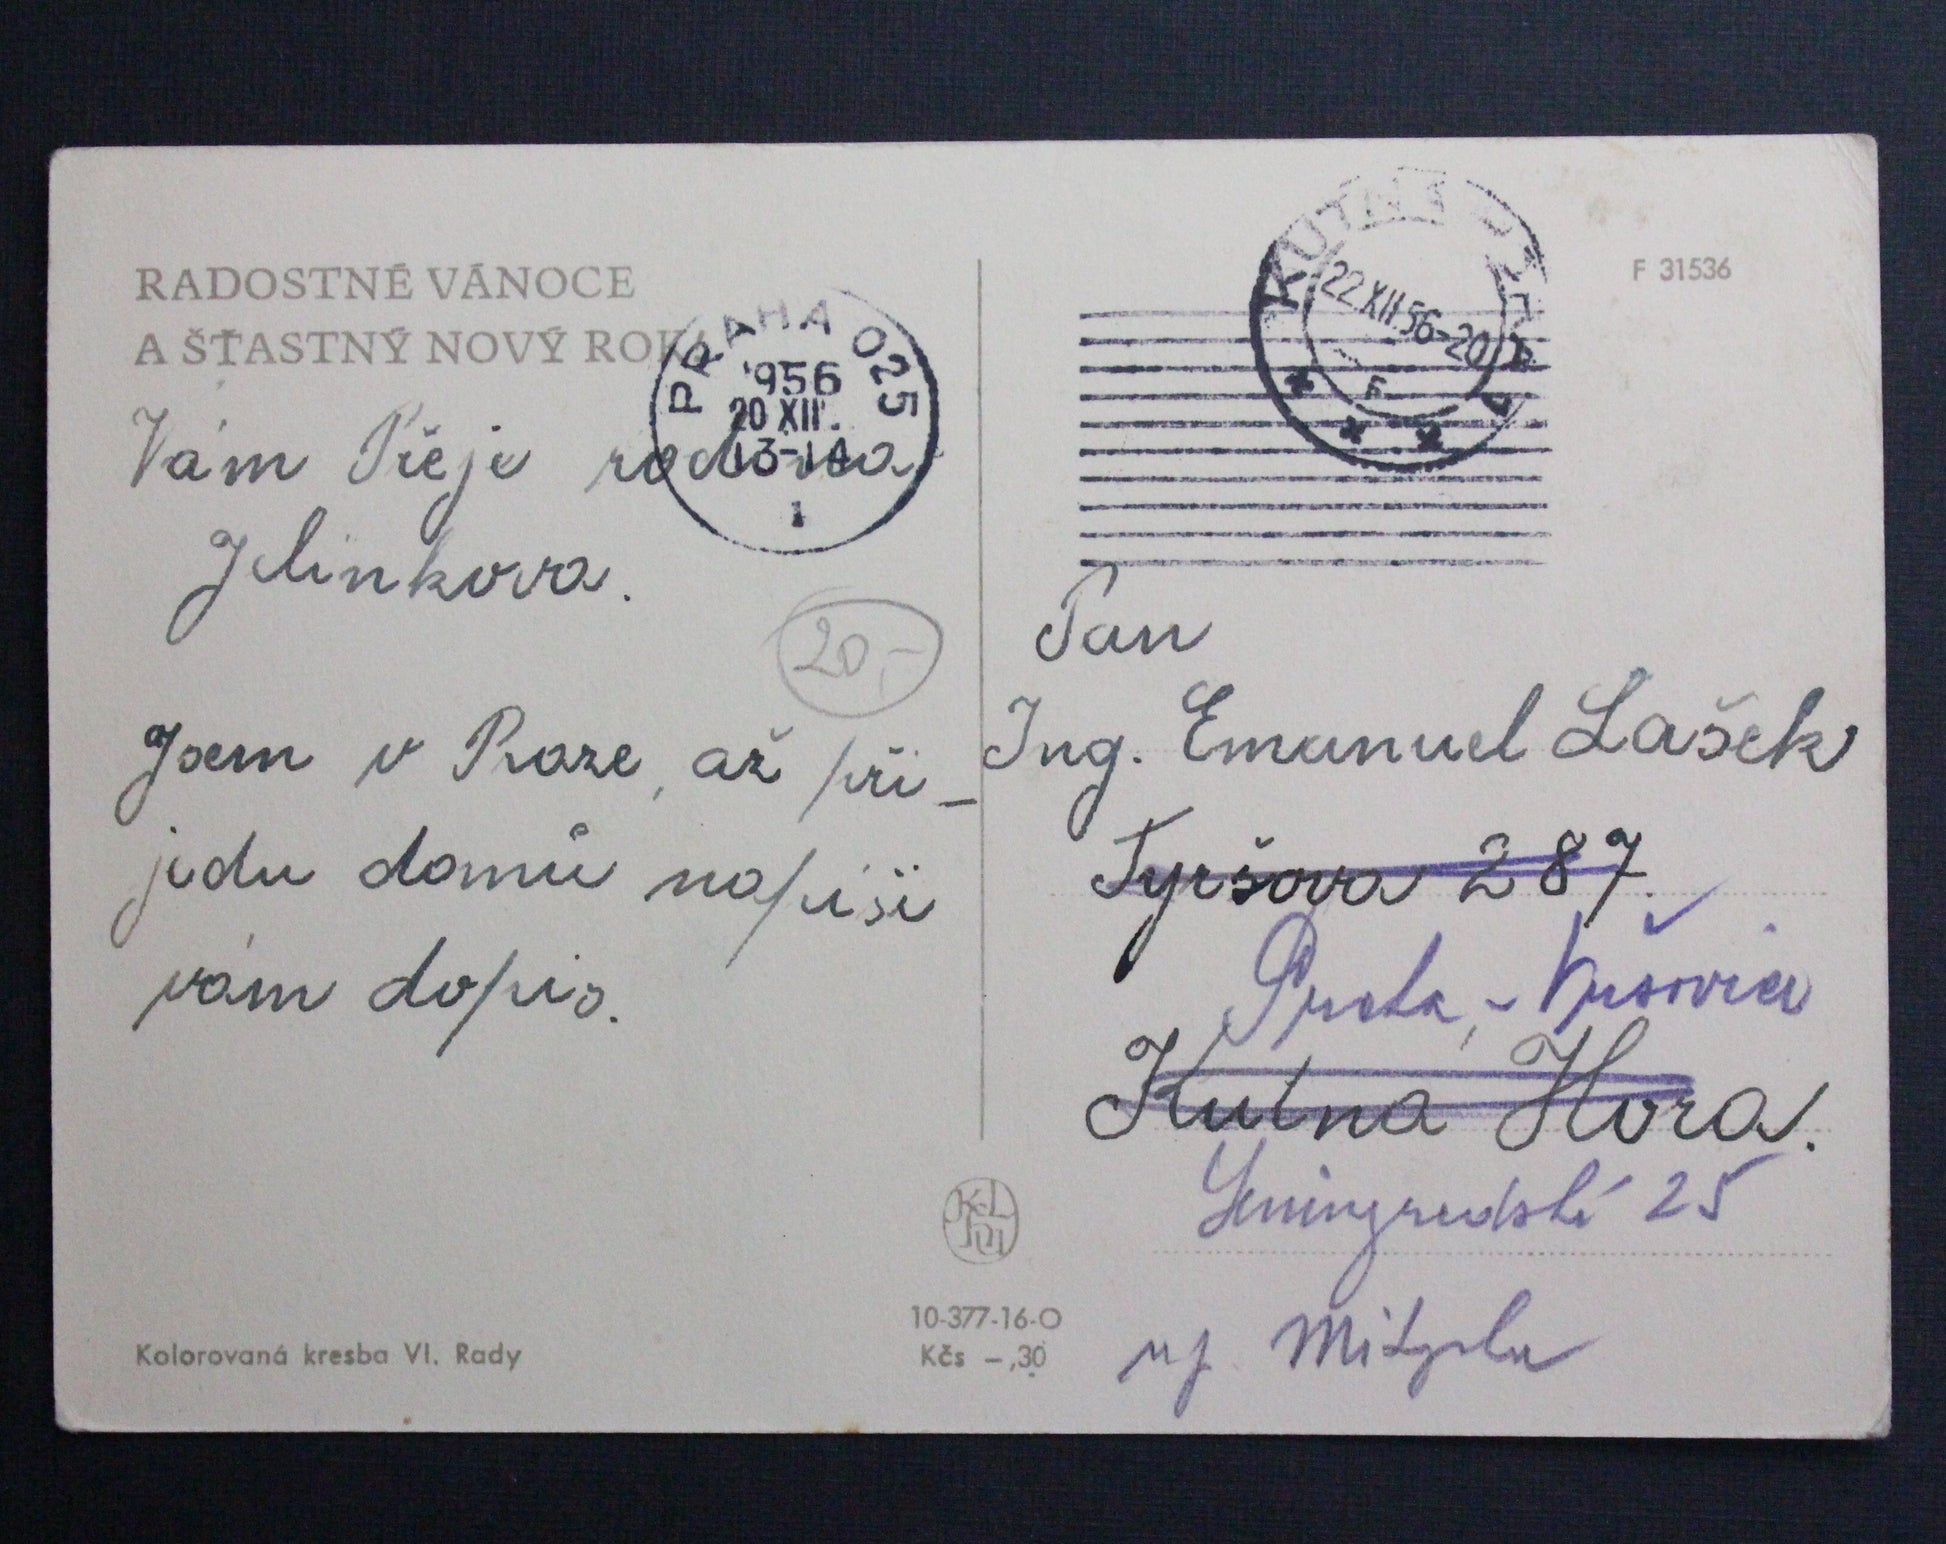 RADOSTNÉ VÁNOCE
A ŠŤASTNÝ NOVÝ ROK
Vám Přeje rodina
Jelinkova.
20,-
Jsem v Praze, až při-
jedu domů napíši
vám dopis.
Kolorovaná kresba Vl. Rady
10-377-16-O
Kčs -,30
PRAHA 025
1956
20 XII.
13-14
1
KUTNÁ HORA 1
22 XII 56-20
F 31536
Pan
Ing. Emanuel Lašek
Tyršova 287.
Praha, - Vršovice
Kutná Hora.
Leningradská 25